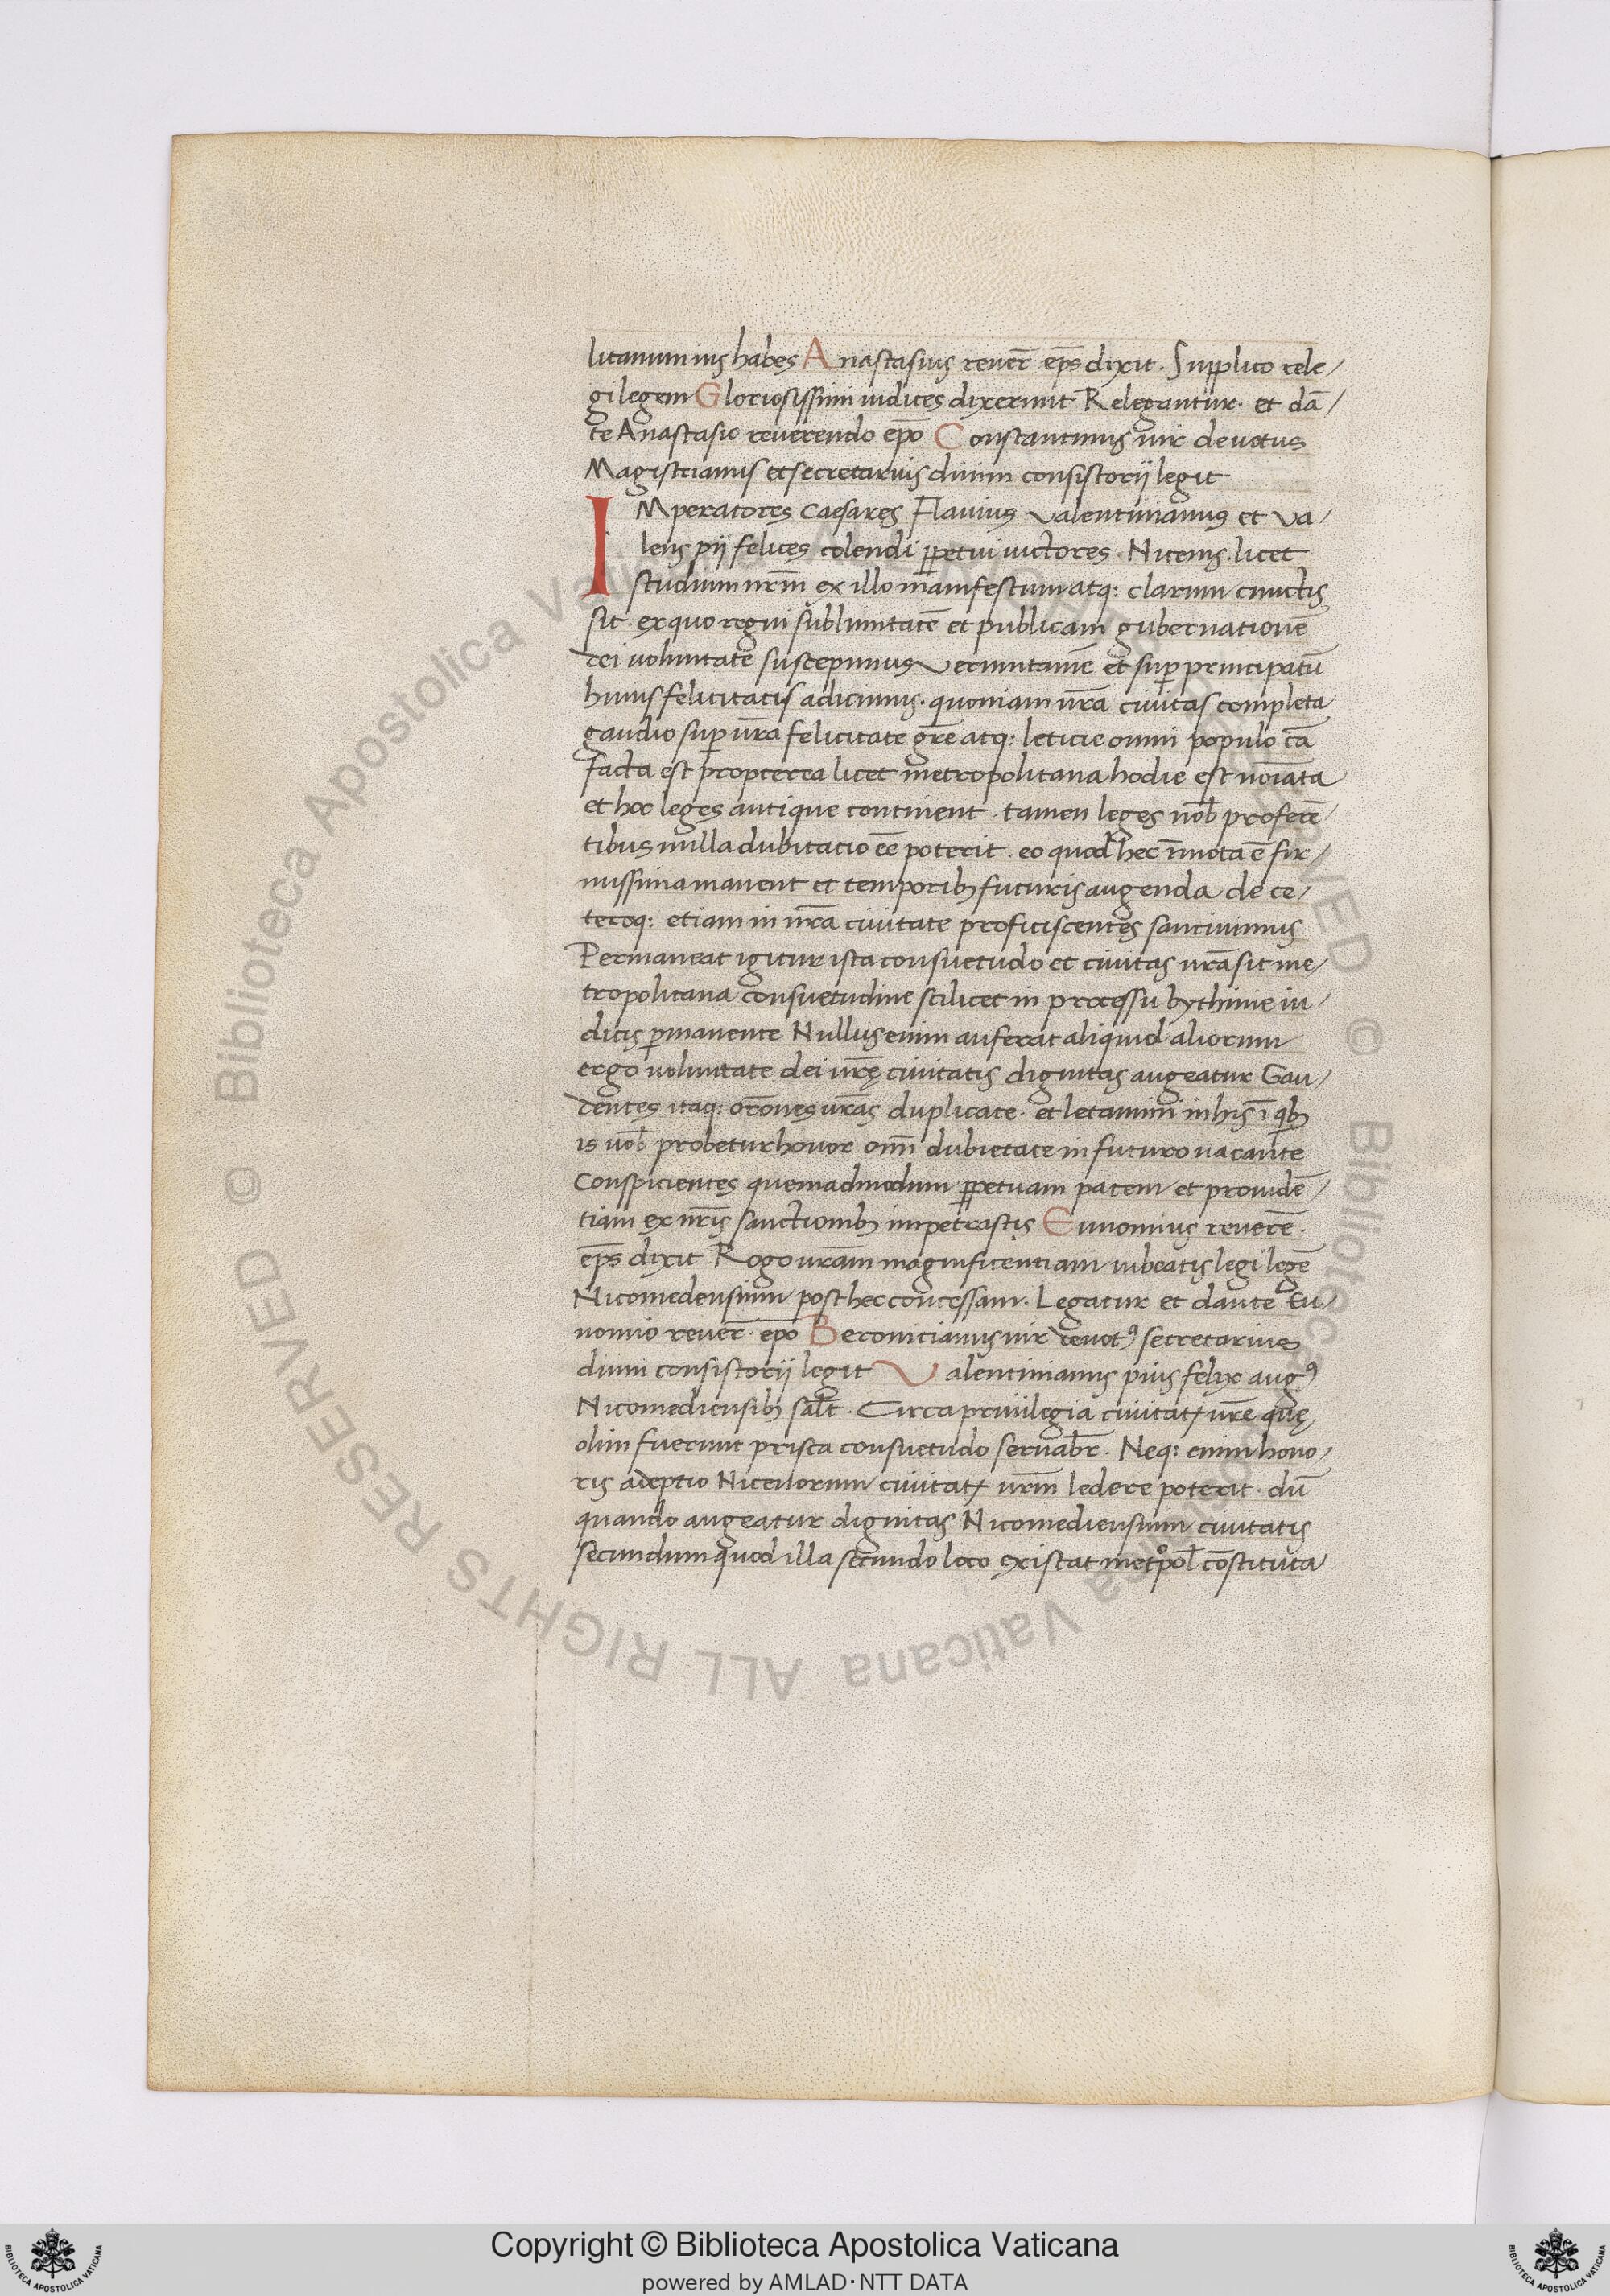 litanum ius habes Anastasius reuer̄ ep̄s dixit. Supplico rele/
gi legem Gloriosissimi iudices dixerunt Relegantur. et dā/
te Anastasio reuerendo epō Constantinus uir deuotus
Magistrianus et secretarius diuini consistorij legit
IMperatores Caesares Flauius Valentinianus et Va/
lens pij felices colendi ꝑpetui uictores. Nicenis. licet
studium nr̄m ex illo manifestum atq: clarum cunctis
sit ex quo regni sublimitatē et publicam gubernationē
rei uoluntate suscepimus Verumtamē et suꝑ principatū
huius felicitatis adicimus. quoniam ur̄a ciuitas completa
gaudio suꝑ ur̄a felicitate gr̄e atq: leticie omni populo cā
facta est propterea licet metropolitana hodie est noīata
et hoc leges antique continent. tamen leges uob̄ proferē/
tibus nulla dubitatio eē poterit. eo quod hec īmota ē fir/
missima manent et temporib; futuris augenda de ce/
teroq: etiam in ur̄a ciuitate proficiscentes sanciuimus
Permaneat igitur ista consuetudo et ciuitas ur̄a sit me/
tropolitana consuetudine scilicet in processu bythinie iu/
dicis ꝑmanente Nullus enim auferat aliquid aliorum
ergo uoluntate dei ur̄ę ciuitatis dignitas augeatur Gau/
dentes itaq: orōnes ur̄as duplicate. et letamini in his ī qb;
is uob̄ probetur honor omī dubietate in futuro uacante
Conspicientes quemadmodum ꝑpetuam pacem et prouidē/
tiam ex nr̄is sanctionib; impetrastis Eunomius reuerē.
ep̄s dixit Rogo ur̄am magnificentiam iubeatis legi legē
Nicomedensium post hec concessam. Legatur et dante Eu/
nomio reuer̄. epō Beronicianus uir deuotꝰ secretarius
diuini consistorij legit Valentinianus pius felix augꝰ
Nicomediensib; sal̄t. Circa priuilegia ciuitatꝭ ur̄e quę
olim fuerunt prisca consuetudo seruab̄r. Neq: enim hono/
ris adeptio Nicenorum ciuitatꝭ ur̄m ledere poterit. dū
quando augeatur dignitas Nicomediensium ciuitatis
secundum quod illa secundo loco existat metᵒpol̄ cōstituta
© Biblioteca Apostolica Vaticana ALL RIGHTS RESERVED © Biblioteca Apostolica Vaticana ALL RIGHTS RESERVED
Copyright © Biblioteca Apostolica Vaticana
powered by AMLAD·NTT DATA
BIBLIOTECA APOSTOLICA VATICANA
BIBLIOTECA APOSTOLICA VATICANA